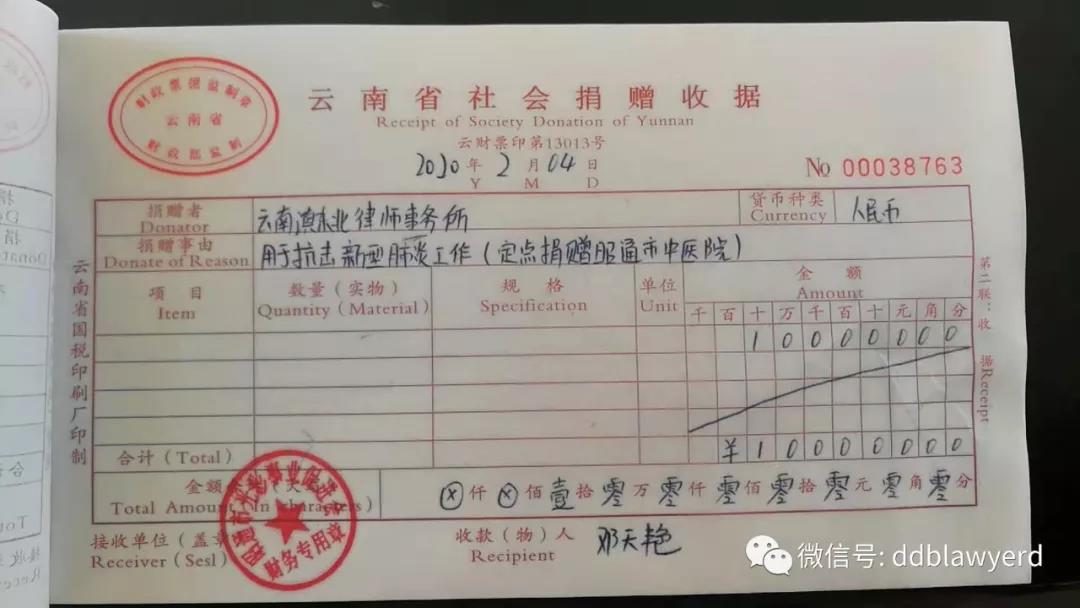 财政票据监制章
云南省
财政部监制
云南省社会捐赠收据
Receipt of Society Donation of Yunnan
云财票印第13013号
2020年2月04日
Y M D
No 00038763
捐赠者 云南滇东北律师事务所 货币种类 人民币
Donator Currency
捐赠事由 用于抗击新型肺炎工作(定点捐赠昭通市中医院)
Donate of Reason
项目 数量(实物) 规格 单位 金额
Item Quantity(Material) Specification Unit Amount
千百十万千百十元角分
1 0 0 0 0 0 0 0 0
合计(Total) ¥ 1 0 0 0 0 0 0 0 0
金额
Total Amount (In characters)
ⓧ仟ⓧ佰壹拾零万零仟零佰零拾零元零角零分
接收单位(盖章) 收款(物)人 邓天艳
Receiver(Sesl) Recipient
财务专用章
云南省国税印刷厂印制
第二联:收据Receipt
微信号: ddblawyerd